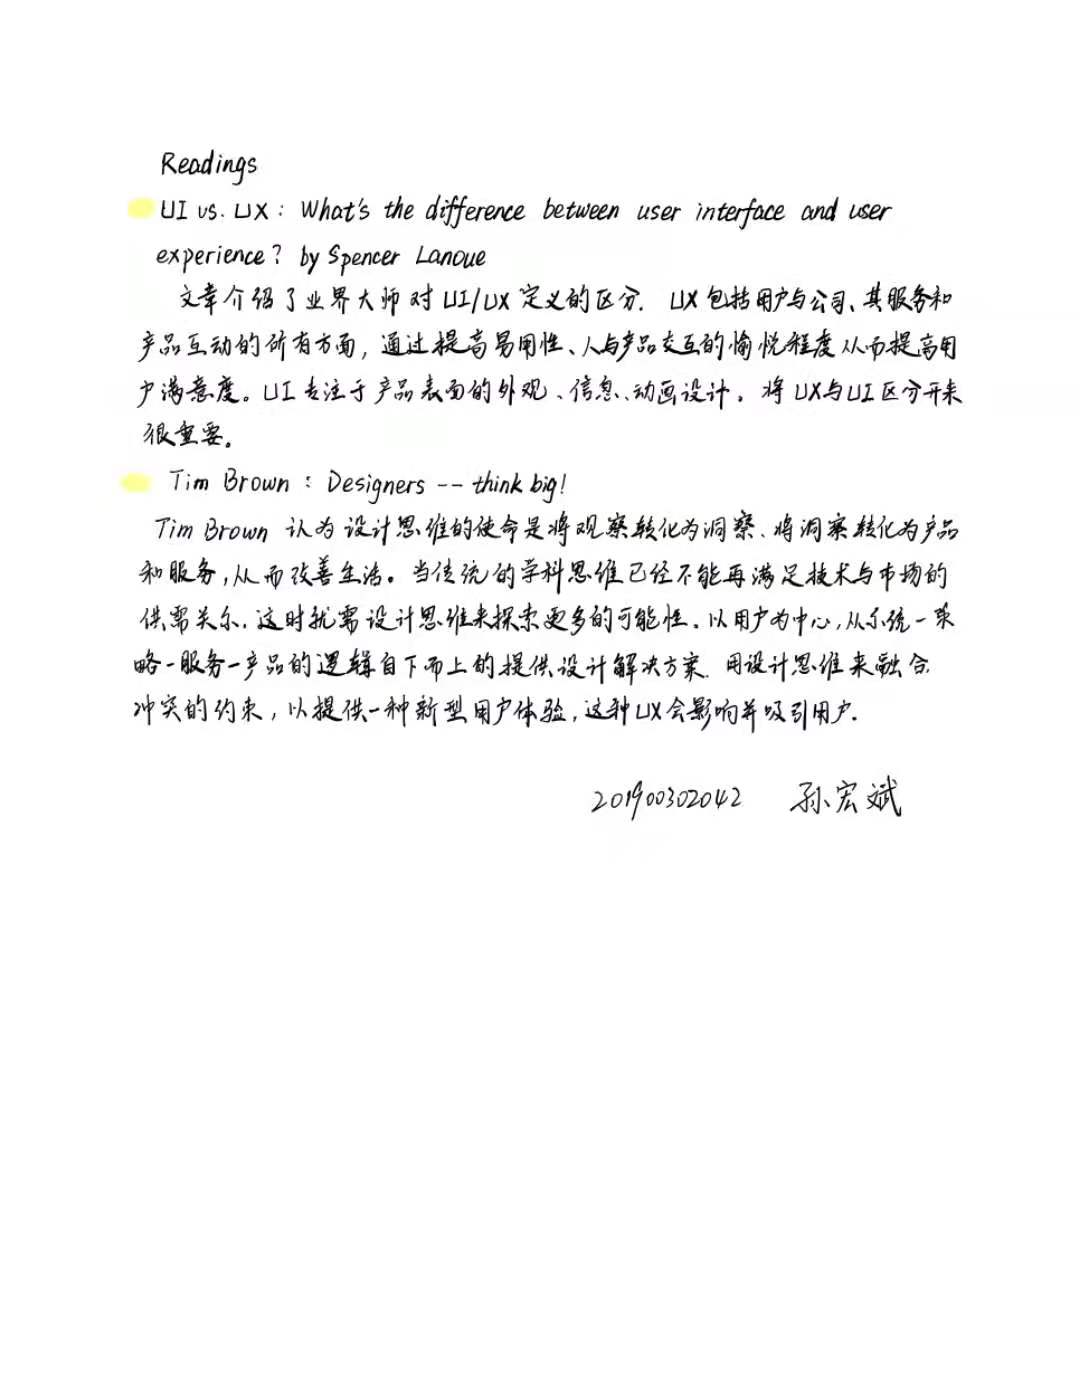 Readings
UI vs. UX: What's the difference between user interface and user
experience? by Spencer Lanoue
文章介绍了业界大师对UI/UX定义的区分. UX包括用户与公司、其服务和
产品互动的所有方面，通过提高易用性、人与产品交互的愉悦程度从而提高用
户满意度。UI专注于产品表面的外观、信息、动画设计。将UX与UI区分开来
很重要。
Tim Brown : Designers -- think big!
Tim Brown 认为设计思维的使命是将观察转化为洞察、将洞察转化为产品
和服务，从而改善生活。当传统的学科思维已经不能再满足技术与市场的
供需关系，这时就需设计思维来探索更多的可能性。以用户为中心，从系统-策
略-服务-产品的逻辑自下而上的提供设计解决方案. 用设计思维来融合
冲突的约束，以提供一种新型用户体验，这种UX会影响并吸引用户.
201900302042 孙宏斌